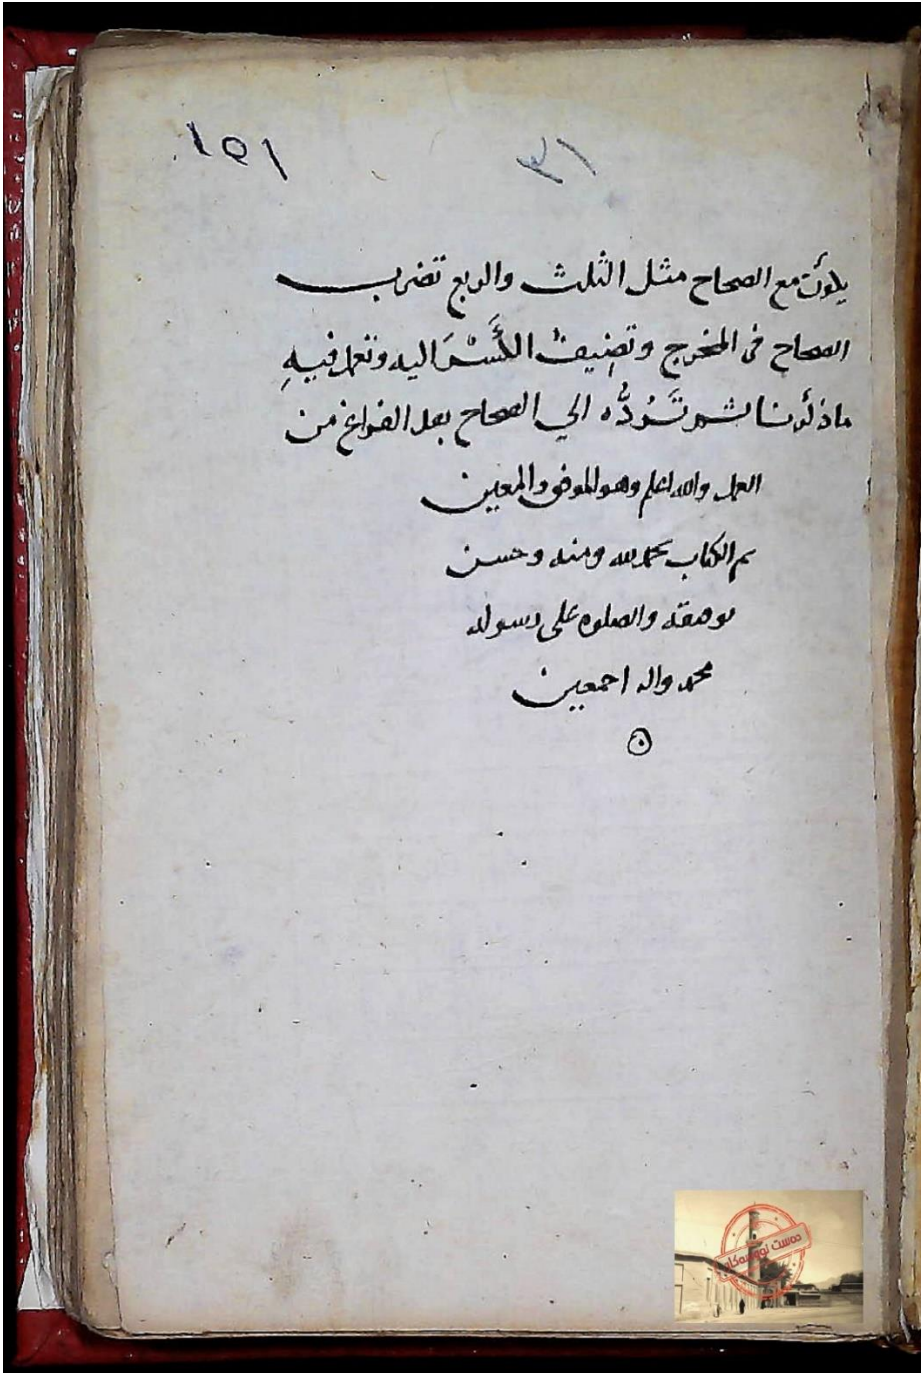 ١٥١ ٣١
يكون مع الصحاح مثل الثلث والربع تضرب
الصحاح فى المخرج وتضيفُ الكَسْرَ اليه وتعمل فيهِ
ماذكرنا ثم تَردُّه الي الصحاح بعد الفراغ من
العمل والله اعلم وهو الموفق والمعين
تم الكتاب بحمد الله ومنه وحسن
توفيقه والصلوه على رسوله
محمد واله اجمعين
دەست نووسەکان